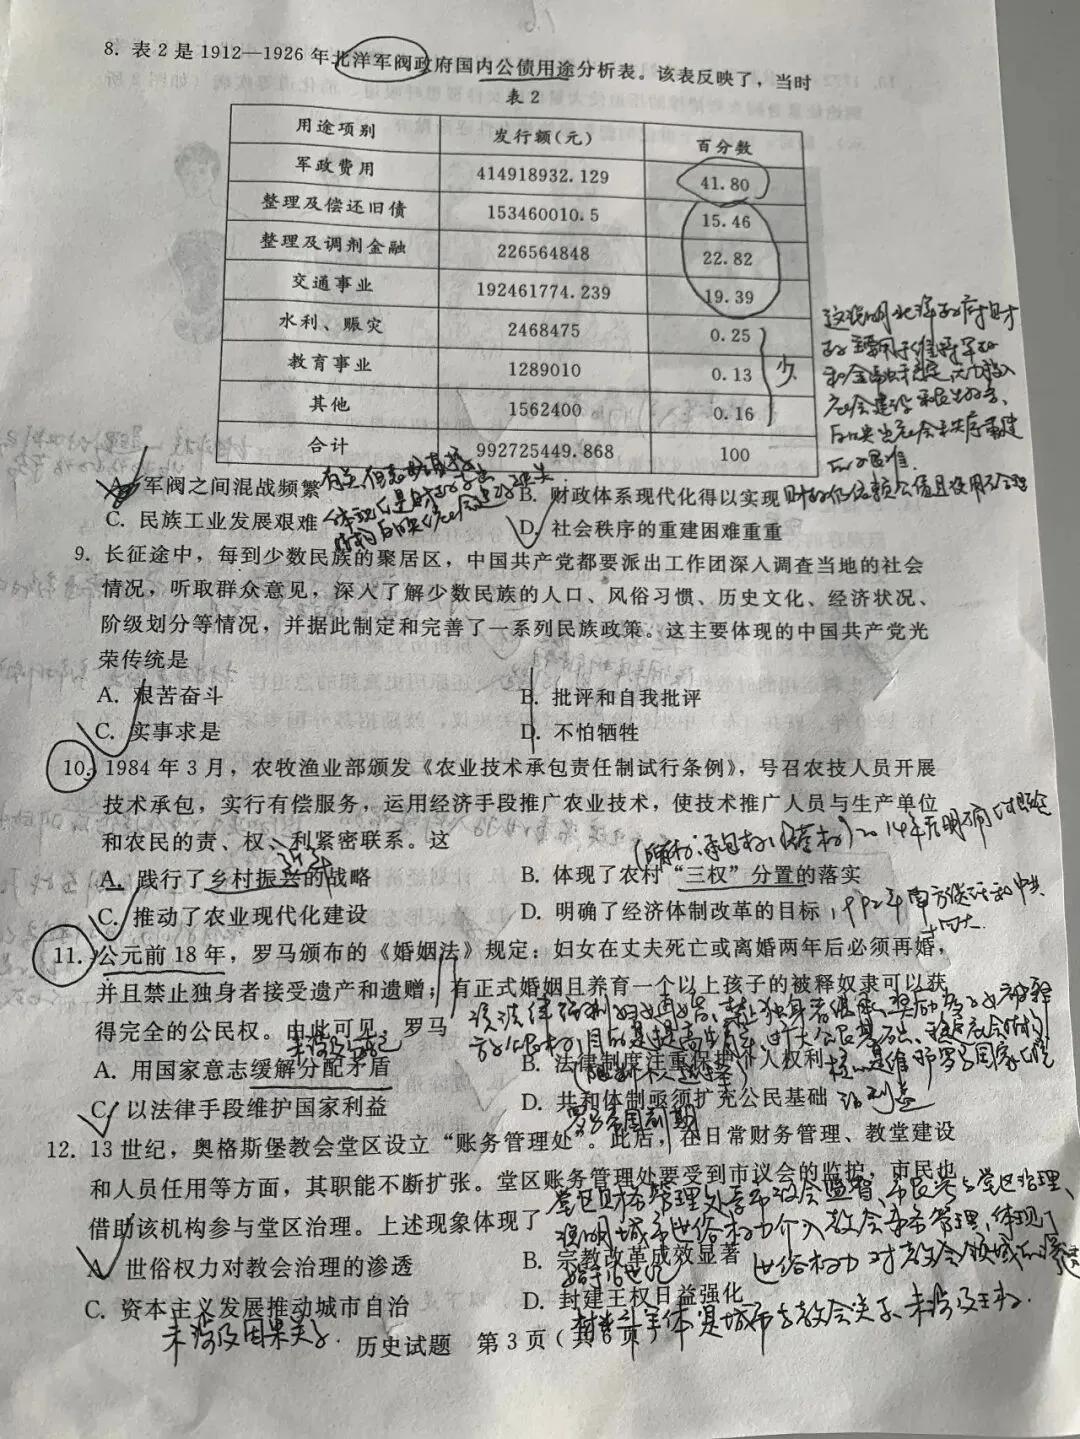 8. 表 2 是 1912—1926 年北洋军阀政府国内公债用途分析表。该表反映了，当时
表 2
用途项别 发行额(元) 百分数
军政费用 414918932.129 41.80
整理及偿还旧债 153460010.5 15.46
整理及调剂金融 226564848 22.82
交通事业 192461774.239 19.39
水利、赈灾 2468475 0.25
教育事业 1289010 0.13
其他 1562400 0.16
合计 992725449.868 100
少
这说明北洋政府财
政主要用于维持军政
和金融稳定
社会建设
A. 军阀之间混战频繁 B. 财政体系现代化得以实现
C. 民族工业发展艰难 D. 社会秩序的重建困难重重
9. 长征途中，每到少数民族的聚居区，中国共产党都要派出工作团深入调查当地的社会
情况，听取群众意见，深入了解少数民族的人口、风俗习惯、历史文化、经济状况、
阶级划分等情况，并据此制定和完善了一系列民族政策。这主要体现的中国共产党光
荣传统是
A. 艰苦奋斗 B. 批评和自我批评
C. 实事求是 D. 不怕牺牲
10. 1984 年 3 月，农牧渔业部颁发《农业技术承包责任制试行条例》，号召农技人员开展
技术承包，实行有偿服务，运用经济手段推广农业技术，使技术推广人员与生产单位
和农民的责、权、利紧密联系。这
2014年
A. 践行了乡村振兴的战略 B. 体现了农村“三权”分置的落实
C. 推动了农业现代化建设 D. 明确了经济体制改革的目标
1992年南方谈话和中共
十四大
11. 公元前 18 年，罗马颁布的《婚姻法》规定：妇女在丈夫死亡或离婚两年后必须再婚，
并且禁止独身者接受遗产和遗赠；有正式婚姻且养育一个以上孩子的被释奴隶可以获
得完全的公民权。由此可见，罗马
A. 用国家意志缓解分配矛盾 B. 法律制度注重保护个人权利
C. 以法律手段维护国家利益 D. 共和体制亟须扩充公民基础
罗马帝国初期
12. 13 世纪，奥格斯堡教会堂区设立“账务管理处”。此后，在日常财务管理、教堂建设
和人员任用等方面，其职能不断扩张。堂区账务管理处要受到市议会的监护，市民也
借助该机构参与堂区治理。上述现象体现了
说明城市世俗权力介入教会事务管理，体现了
世俗权力对教会领域的渗透
A. 世俗权力对教会治理的渗透 B. 宗教改革成效显著
始于16世纪
C. 资本主义发展推动城市自治 D. 封建王权日益强化
未涉及因果关系. 未涉及王权.
历史试题 第 3 页（共 6 页）